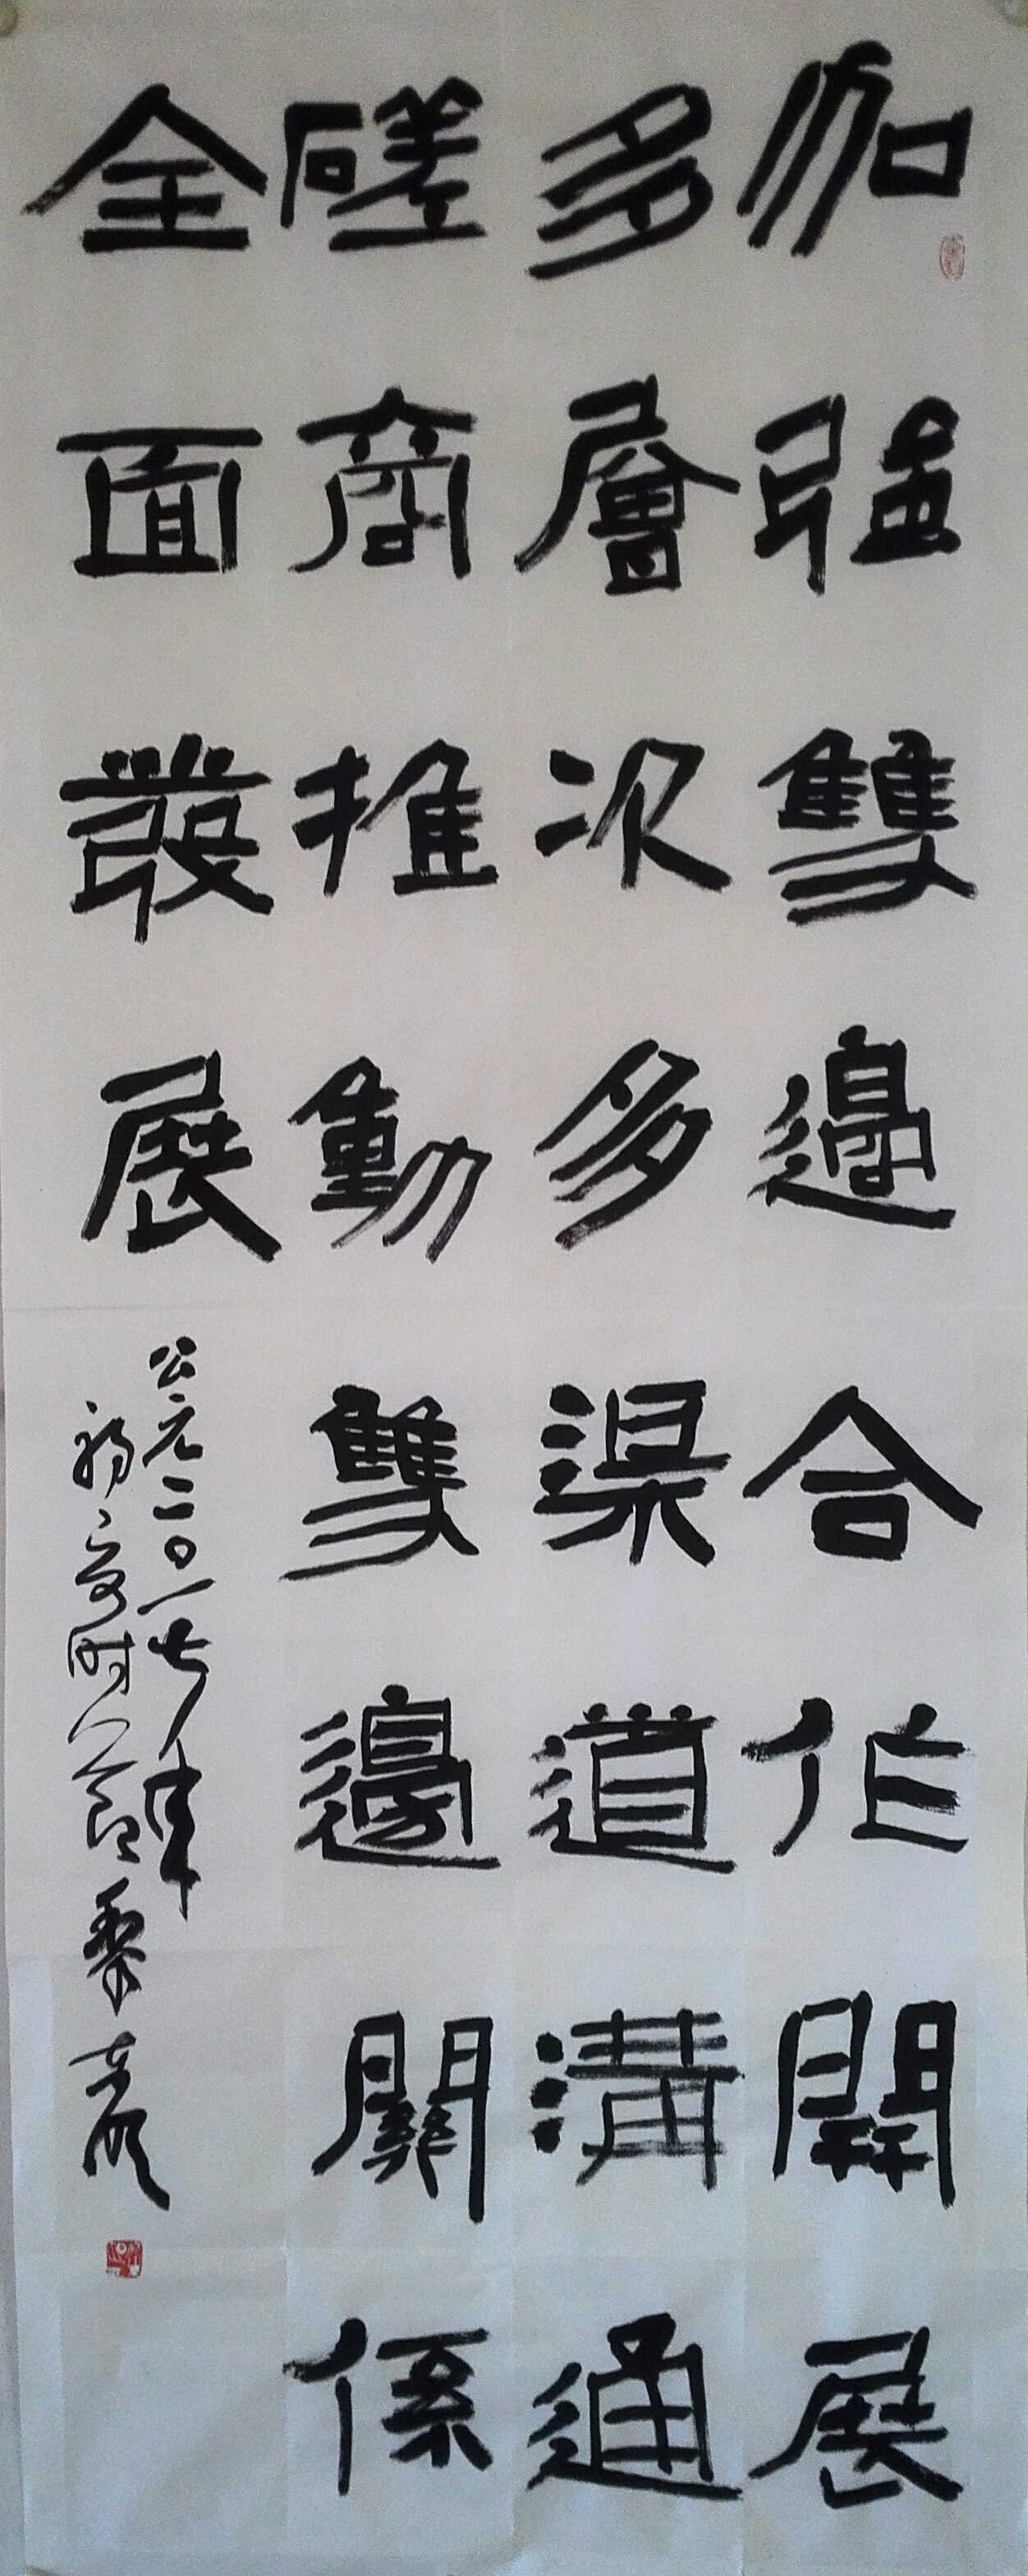 加强雙邊合作開展
多層次多渠道溝通
磋商推動雙邊關係
全面發展
公元二〇一七年
時節